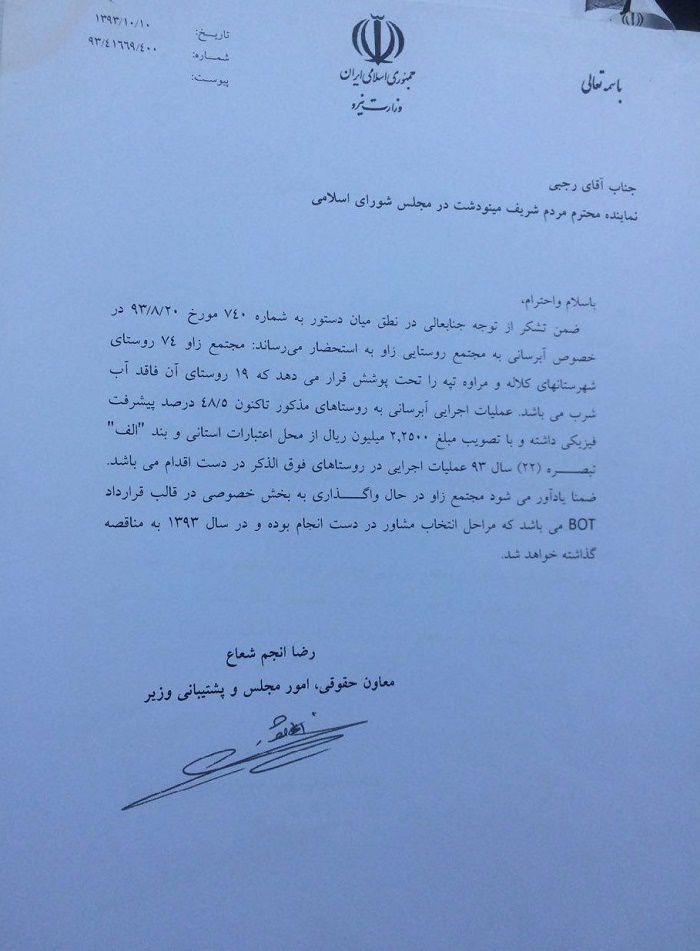 باسمه تعالی
جمهوری اسلامی ایران
وزارت نیرو
تاریخ: ۱۳۹۳/۱۰/۱۰
شماره: ۹۳/۴۱۶۶۹/۴۰۰
پیوست:
جناب آقای رجبی
نماینده محترم مردم شریف مینودشت در مجلس شورای اسلامی
باسلام واحترام،
ضمن تشکر از توجه جنابعالی در نطق میان دستور به شماره ۷۴۰ مورخ ۹۳/۸/۲۰ در
خصوص آبرسانی به مجتمع روستایی زاو به استحضار می‌رساند: مجتمع زاو ۷۴ روستای
شهرستانهای کلاله و مراوه تپه را تحت پوشش قرار می دهد که ۱۹ روستای آن فاقد آب
شرب می باشد. عملیات اجرایی آبرسانی به روستاهای مذکور تاکنون ۴۸/۵ درصد پیشرفت
فیزیکی داشته و با تصویب مبلغ ۲,۲۵۰۰ میلیون ریال از محل اعتبارات استانی و بند "الف"
تبصـــره (۲۲) سال ۹۳ عملیات اجرایی در روستاهای فوق الذکر در دست اقدام می باشد.
ضمنا یادآور می شود مجتمع زاو در حال واگـــذاری به بخش خصوصی در قالب قرارداد
BOT می باشد که مراحل انتخاب مشاور در دست انجام بوده و در سال ۱۳۹۳ به مناقصه
گذاشته خواهد شد.
رضا انجم شعاع
معاون حقوقی، امور مجلس و پشتیبانی وزیر